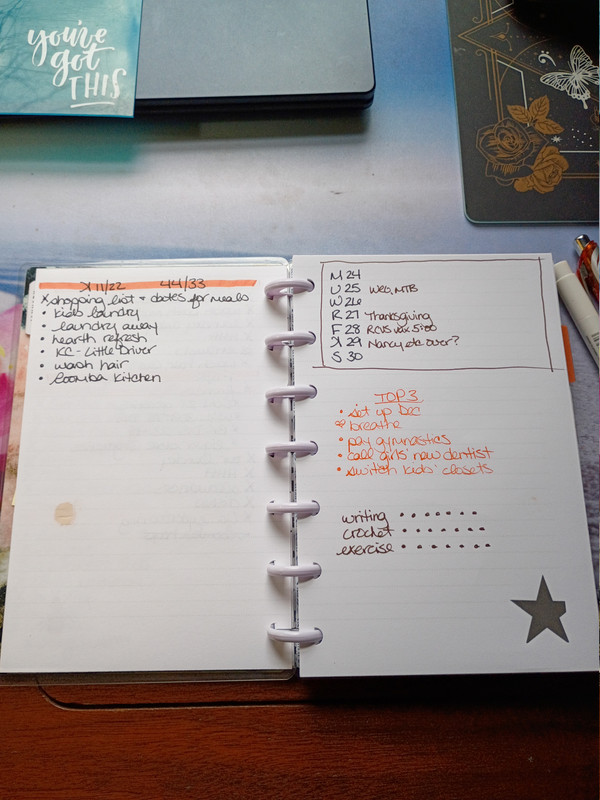 you've
got
THIS
X 11/22 44/33
x shopping list + dates for meals
• kids laundry
• laundry away
• hearth refresh
• KC - Little Driver
• wash hair
• roomba kitchen
M 24
U 25 WEO, MTB
W 26
R 27 Thanksgiving
F 28 5:00
X 29 Nancy etc over?
S 30
TOP 3
• set up Dec
• breathe
• pay gymnastics
• call girls' new dentist
• switch kids' closets
writing • • • • • • •
crochet • • • • • • •
exercise • • • • • • •